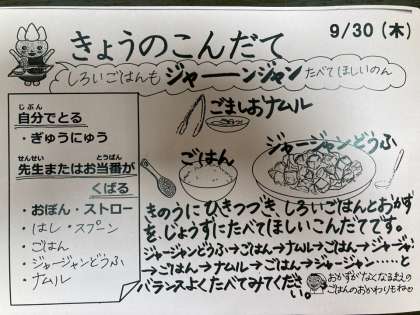 きょうのこんだて
9/30(木)
しろいごはんも ジャーーンジャン たべてほしいのん
じぶん
自分でとる
・ぎゅうにゅう
せんせい とうばん
先生またはお当番が
くばる
・おぼん・ストロー
・はし・スプーン
・ごはん
・ジャージャンどうふ
・ナムル
ごましおナムル
ごはん
ジャージャンどうふ
きのうにひきつづき、しろいごはんとおかず
を、じょうずにたべてほしいこんだてです。
ジャージャンどうふ→ごはん→ナムル→ごはん→ジャージャン
→ごはん→ナムル→ごはん→ジャージャン……と
バランスよくたべてみてください。
おかずがなくなるまえの
ごはんのおかわりもね